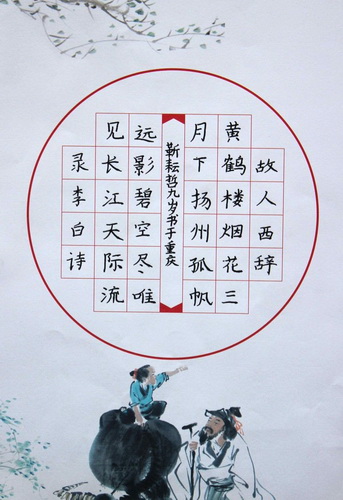 故人西辞
黄鹤楼烟花三
月下扬州孤帆
靳耘哲九岁书于重庆
远影碧空尽唯
见长江天际流
录李白诗